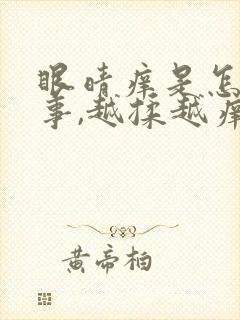 眼睛痒是怎
事,越揉越痒
黄帝柏